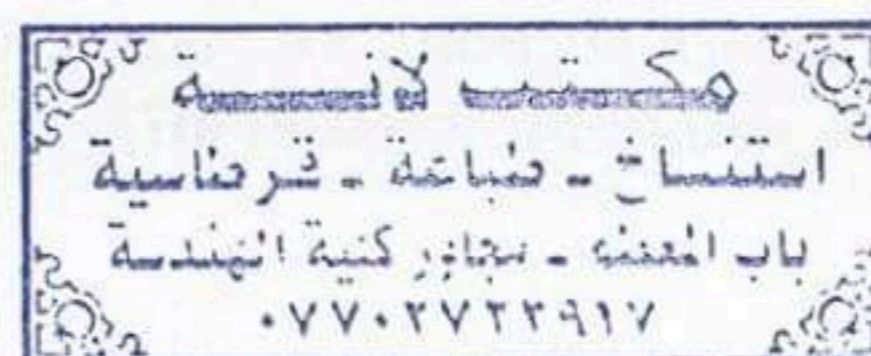 مكتب لانسية
استنساخ - طباعة - قرطاسية
باب المعظم - مجاور كلية الهندسة
٠٧٧٠٢٧٢٢٩١٧